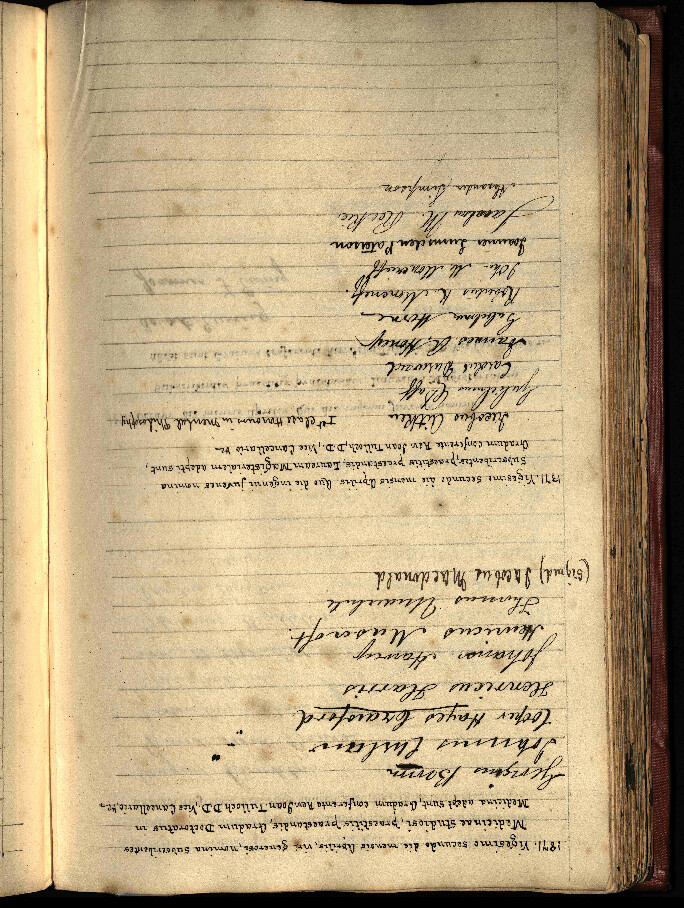 1871. Vigesimo secundo die mensis Aprilis, viri generosi, nomina subscribentes
Medicinae studiosi, praestitis praestandis, Gradum Doctoratus in
Medicina adepti sunt, Gradum conferente Rev. Joan Tulloch D.D. Vice Cancellario &c.
Georgius Bown
Johannes
Cooper Hayes Crawford
Henricus Harris
Johannes Harvey
Henricus Muscroft.
Thomas Umarhule
(signed) Jacobus Macdonald
1871. Vigesimo secundo die mensis Aprilis Quo die ingenui juvenes nomina
Subscribentes, praestitis praestandis, Lauream Magisterialem adepti sunt,
Gradum conferente Rev. Joan Tulloch, D.D., Vice Cancellario &c.
Jacobus Aitken 1st class Honours in Mental Philosophy
Gulielmus
Carolus Durward
James A. Honey
Gulielmus Horne
R. K. Moncrieff.
Joh. M. Moncrieff
Joannes Lumsden Paterson
M.
Alexander Simpson